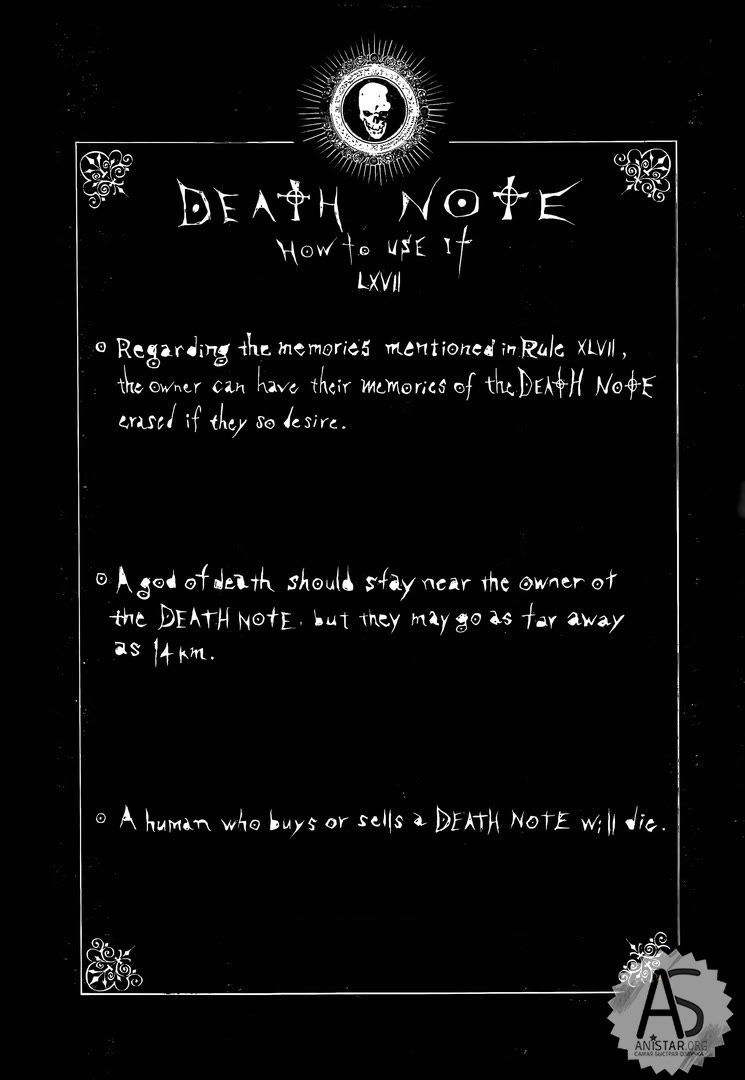 DEATH NOTE
HOW to USE It
LXVII
Regarding the memories mentioned in Rule XLVII,
the owner can have their memories of the DEATH NOTE
erased if they so desire.
A god of death should stay near the owner of
the DEATH NOTE. but they may go as far away
as 14 km.
A human who buys or sells a DEATH NOTE will die.
AS
ANISTAR.ORG
САМАЯ БЫСТРАЯ ОЗВУЧКА